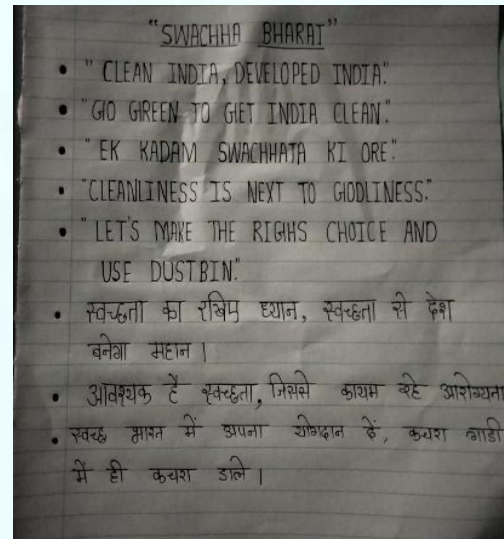 "SWACHHA BHARAT"
• "CLEAN INDIA, DEVELOPED INDIA."
• "GO GREEN TO GET INDIA CLEAN."
• "EK KADAM SWACHHATA KI ORE."
• "CLEANLINESS IS NEXT TO GODLINESS."
• "LET'S MAKE THE RIGHHS CHOICE AND
USE DUSTBIN."
• स्वच्छता का रखिए ध्यान, स्वच्छता से देश
बनेगा महान।
• आवश्यक है स्वच्छता, जिससे कायम रहे आरोग्यता
• स्वच्छ भारत में अपना योगदान दें, कचरा गाडी
में ही कचरा डाले।